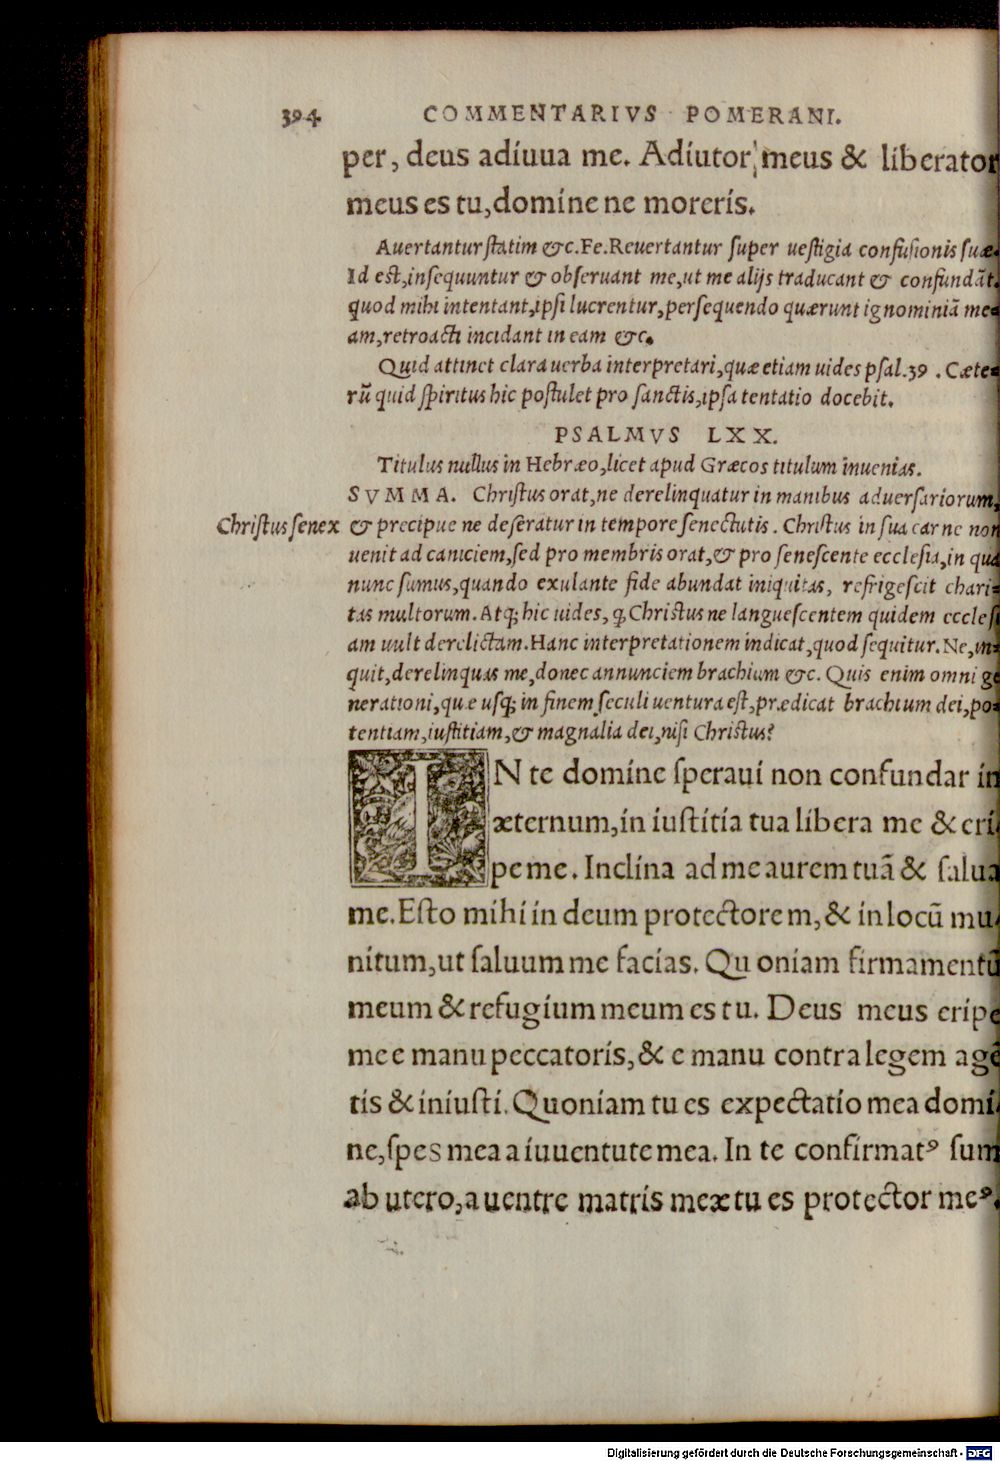 394 COMMENTARIVS POMERANI.
per, deus adiuua me. Adiutor meus & liberator
meus es tu, domine ne moreris.
Auertantur ſtatim &c. Fe. Reuertantur ſuper ueſtigia confuſionis ſuæ.
Id eſt, inſequuntur & obſeruant me, ut me alijs traducant & confundãt.
quod mihi intentant, ipſi lucrentur, perſequendo quærunt ignominiã me-
am, retroacti incidant in eam &c.
Quid attinet clara uerba interpretari, quæ etiam uides pſal. 39. Cæte-
rũ quid ſpiritus hic poſtulet pro ſanctis, ipſa tentatio docebit.
PSALMVS LXX.
Titulus nullus in Hebræo, licet apud Græcos titulum inuenias.
SVMMA. Chriſtus orat, ne derelinquatur in manibus aduerſariorum,
Chriſtus ſenex & precipue ne deſeratur in tempore ſenectutis. Chriſtus in ſua carne non
uenit ad caniciem, ſed pro membris orat, & pro ſeneſcente eccleſia, in qua
nunc ſumus, quando exulante fide abundat iniquitas, refrigeſcit chari-
tas multorum. Atq; hic uides, ꝙ Chriſtus ne langueſcentem quidem eccleſi
am uult derelictam. Hanc interpretationem indicat, quod ſequitur. Ne, in-
quit, derelinquas me, donec annunciem brachium &c. Quis enim omni ge
nerationi, quæ uſq; in finem ſeculi uentura eſt, prædicat brachium dei, po-
tentiam, iuſtitiam, & magnalia dei, niſi Chriſtus?
IN te domine ſperaui non confundar in
æternum, in iuſtitia tua libera me & eri-
pe me. Inclina ad me aurem tuã & ſalua
me. Eſto mihi in deum protectorem, & in locũ mu-
nitum, ut ſaluum me facias. Quoniam firmamentũ
meum & refugium meum es tu. Deus meus eripe
me e manu peccatoris, & e manu contra legem agẽ
tis & iniuſti. Quoniam tu es expectatio mea domi-
ne, ſpes mea a iuuentute mea. In te confirmatꝰ ſum
ab utero, a uentre matris meæ tu es protector meꝰ.
Digitalisierung gefördert durch die Deutsche Forschungsgemeinschaft - DFG